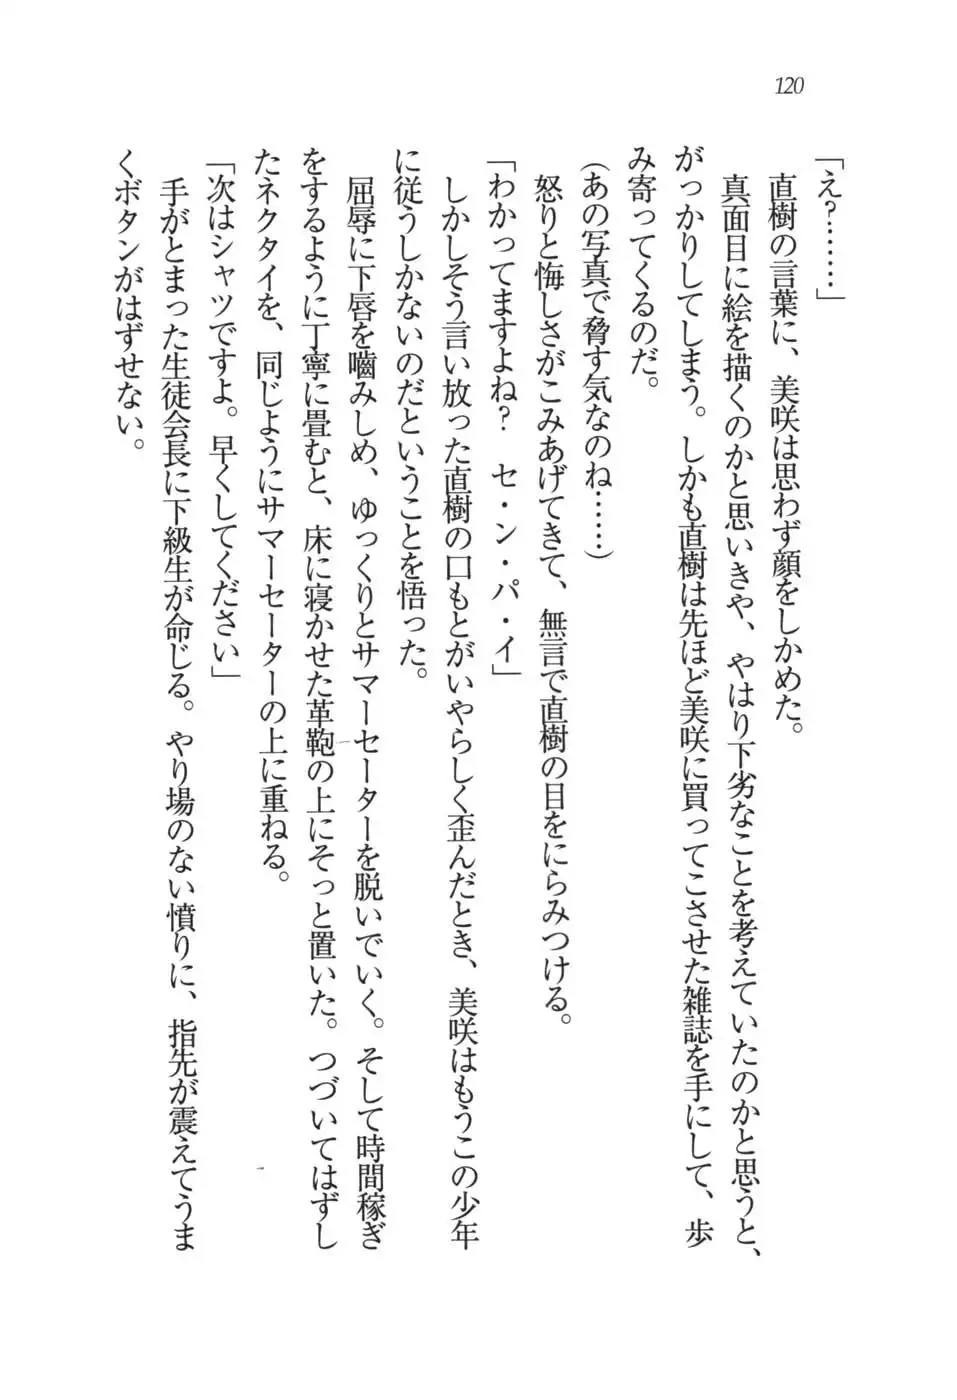 120
「え？……」
直樹の言葉に、美咲は思わず顔をしかめた。
真面目に絵を描くのかと思いきや、やはり下劣なことを考えていたのかと思うと、
がっかりしてしまう。しかも直樹は先ほど美咲に買ってこさせた雑誌を手にして、歩
み寄ってくるのだ。
（あの写真で脅す気なのね……）
怒りと悔しさがこみあげてきて、無言で直樹の目をにらみつける。
「わかってますよね？　セ・ン・パ・イ」
しかしそう言い放った直樹の口もとがいやらしく歪んだとき、美咲はもうこの少年
に従うしかないのだということを悟った。
屈辱に下唇を嚙みしめ、ゆっくりとサマーセーターを脱いでいく。そして時間稼ぎ
をするように丁寧に畳むと、床に寝かせた革鞄の上にそっと置いた。つづいてはずし
たネクタイを、同じようにサマーセーターの上に重ねる。
「次はシャツですよ。早くしてください」
手がとまった生徒会長に下級生が命じる。やり場のない憤りに、指先が震えてうま
くボタンがはずせない。